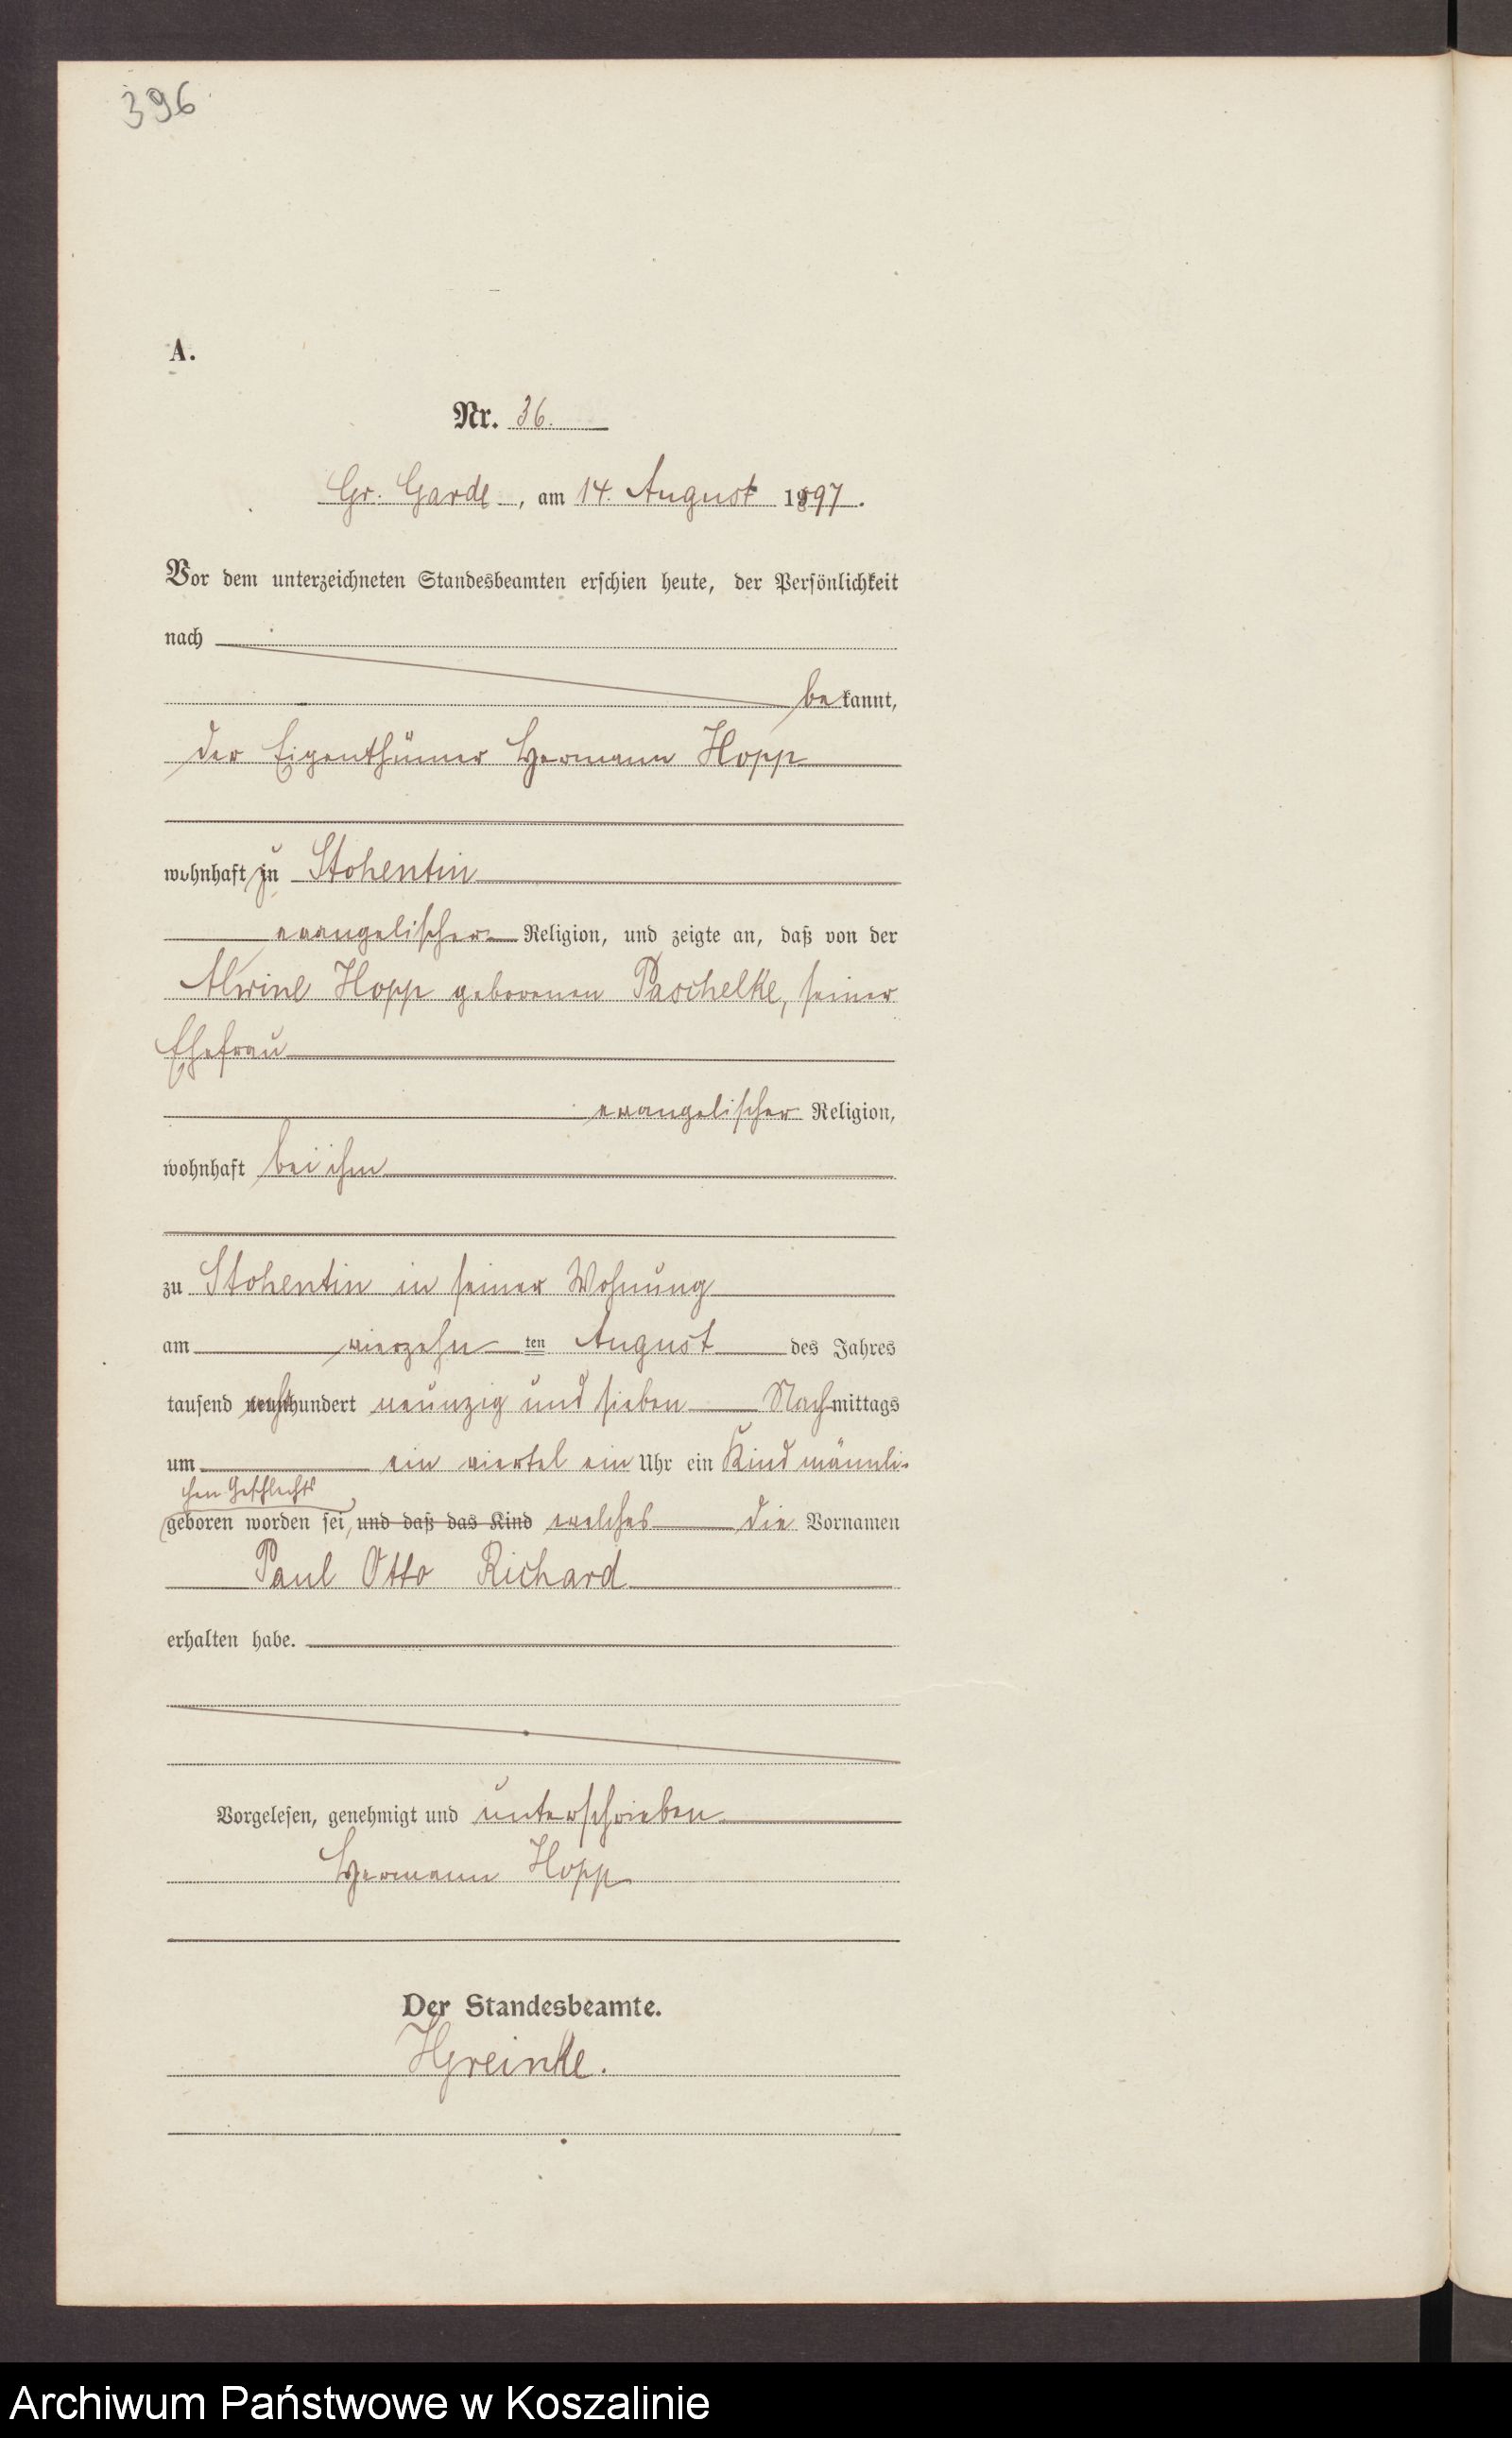 396
A.
Nr. 36.
Gr. Garde, am 14. August 1897.
Vor dem unterzeichneten Standesbeamten erschien heute, der Persönlichkeit
nach
bekannt,
der Eigenthümer Hermann Hopp
wohnhaft zu Stohentin
evangelischer Religion, und zeigte an, daß von der
Alwine Hopp geborenen Paschelke, seiner
Ehefrau
evangelischer Religion,
wohnhaft bei ihm
zu Stohentin in seiner Wohnung
am vierzehn ten August des Jahres
tausend achthundert neunzig und sieben Nachmittags
um ein viertel ein Uhr ein Kind männli-
chen Geschlechts
geboren worden sei, und daß das Kind welches die Vornamen
Paul Otto Richard
erhalten habe.
Vorgelesen, genehmigt und unterschrieben
Hermann Hopp
Der Standesbeamte.
HGreinke.
Archiwum Państwowe w Koszalinie